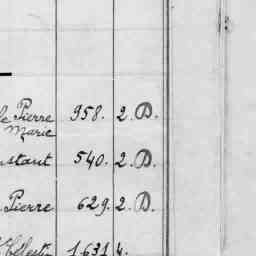 le Pierre 958. 2. D.
Marie
nstant 540. 2. D.
Pierre 629. 2. D.
Célestin 1631 4.